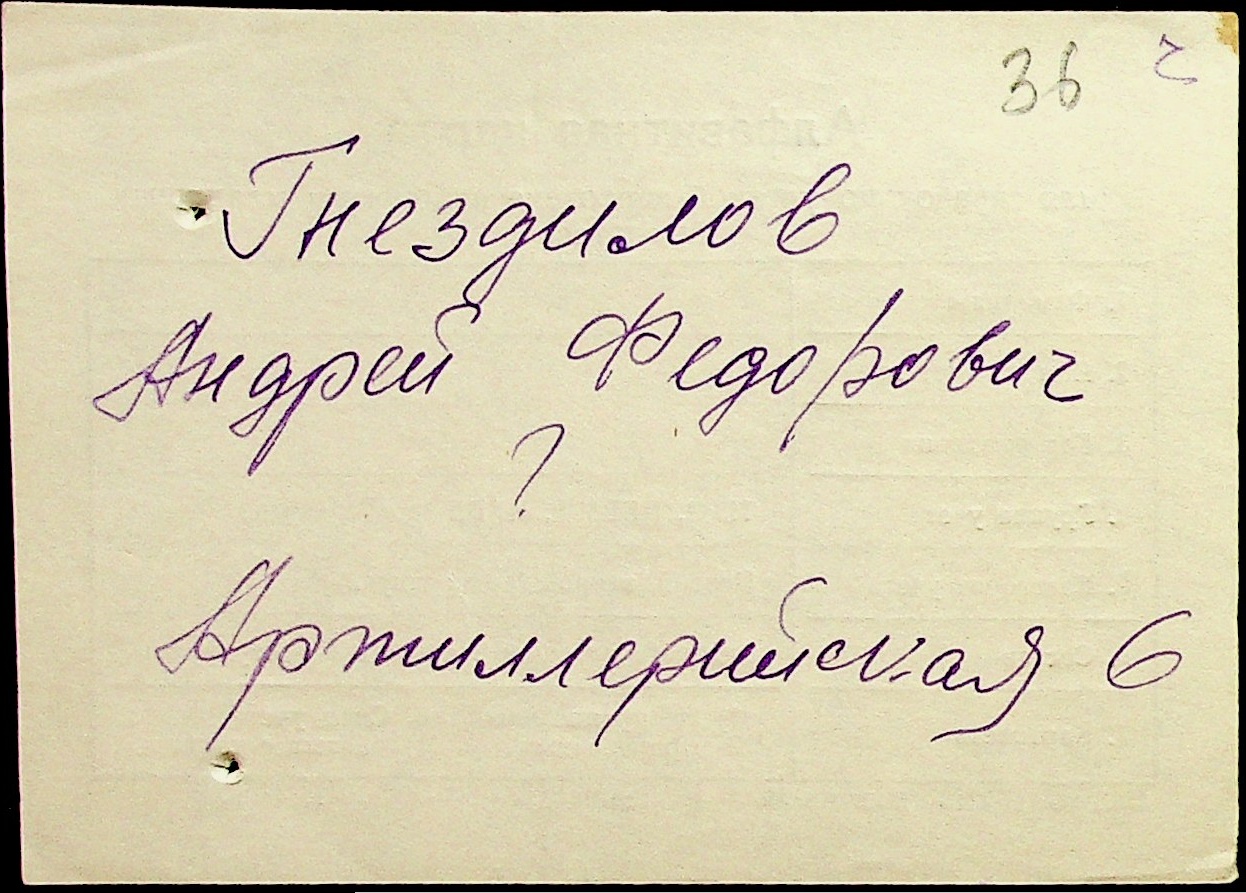 36 ч
Гнездилов
Андрей Федорович
?
Артиллерийская 6